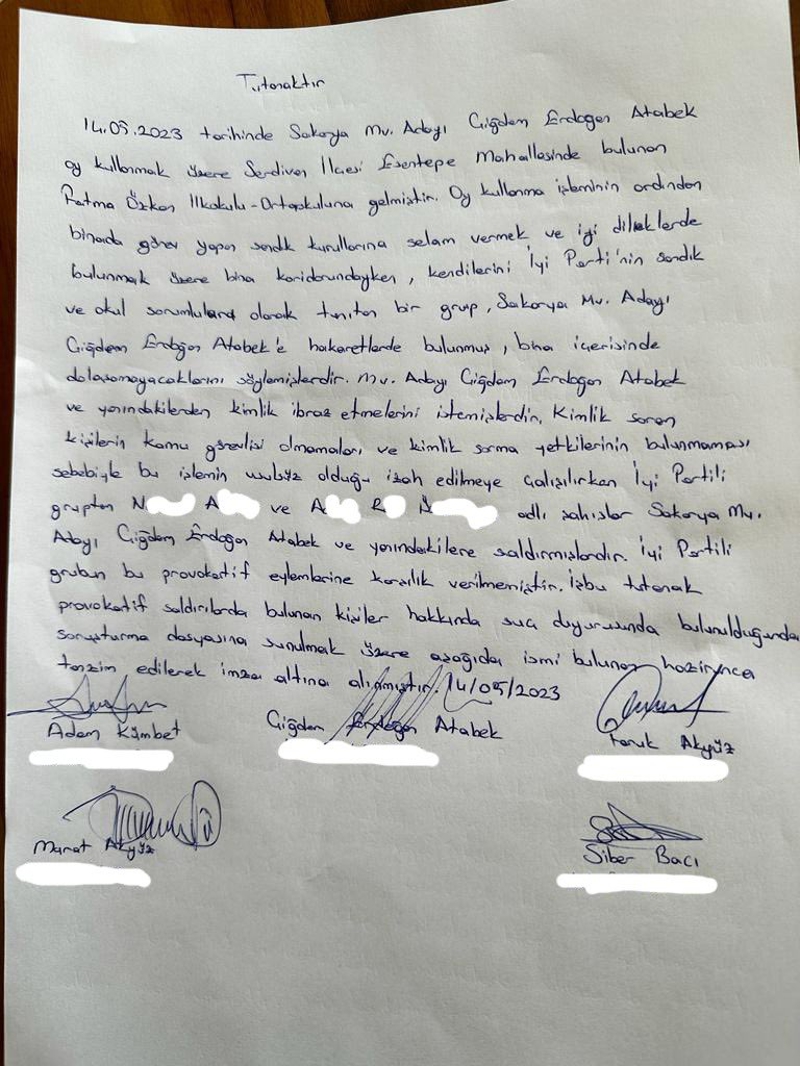 Tutanaktır
14.05.2023 tarihinde Sakarya Mv. Adayı Çiğdem Erdoğan Atabek
oy kullanmak üzere Serdivan İlçesi Esentepe Mahallesinde bulunan
Fatma Özkan İlkokulu-Ortaokuluna gelmiştir. Oy kullanma işleminin ardından
binada görev yapan sandık kurullarına selam vermek ve iyi dileklerde
bulunmak üzere bina koridorundayken, kendilerini İyi Parti'nin sandık
ve okul sorumluları olarak tanıtan bir grup, Sakarya Mv. Adayı
Çiğdem Erdoğan Atabek'e hakaretlerde bulunmuş, bina içerisinde
dolaşamayacaklarını söylemişlerdir. Mv. Adayı Çiğdem Erdoğan Atabek
ve yanındakilerden kimlik ibraz etmelerini istemişlerdir. Kimlik soran
kişilerin kamu görevlisi olmamaları ve kimlik sorma yetkilerinin bulunmaması
sebebiyle bu işlemin usulsüz olduğu izah edilmeye çalışılırken İyi Partili
gruptan N A ve A R Ö adlı şahıslar Sakarya Mv.
Adayı Çiğdem Erdoğan Atabek ve yanındakilere saldırmışlardır. İyi Partili
grubun bu provokatif eylemlerine karşılık verilmemiştir. İşbu tutanak
provokatif saldırılarda bulunan kişiler hakkında suç duyurusunda bulunulduğunda
soruşturma dosyasına sunulmak üzere aşağıda ismi bulunan hazirunca
tanzim edilerek imza altına alınmıştır. 14/05/2023
Adem Kümbet Çiğdem Erdoğan Atabek Faruk Akyüz
Murat Akyüz Siber Bacı